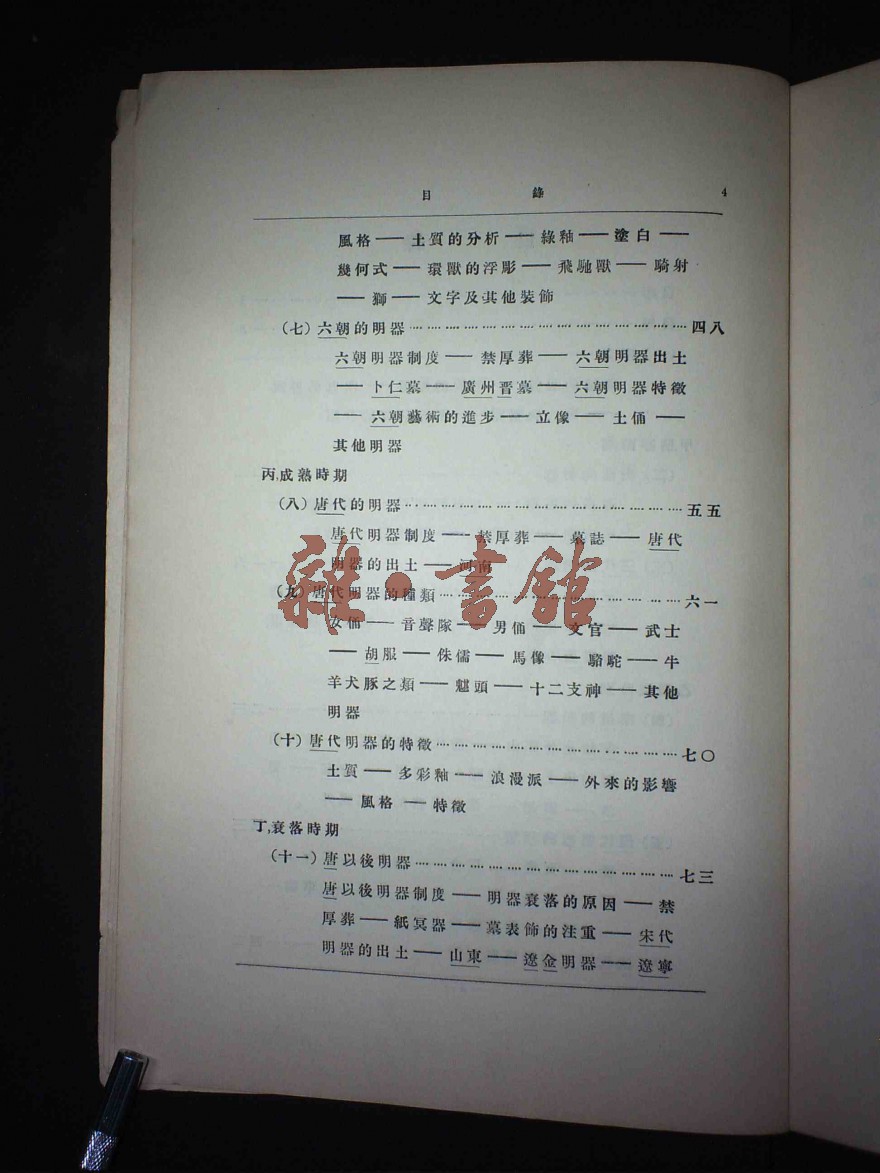 目 錄 4
風格——土質的分析——綠釉——塗白——
幾何式——環獸的浮彫——飛馳獸——騎射
——獅——文字及其他裝飾
(七)六朝的明器……………………………四八
六朝明器制度——禁厚葬——六朝明器出土
——卜仁墓——廣州晉墓——六朝明器特徵
——六朝藝術的進步——立像——土俑——
其他明器
丙,成熟時期
(八)唐代的明器……………………………五五
唐代明器制度——禁厚葬——墓誌——唐代
明器的出土——河南
(九)唐代明器的種類……………………………六一
女俑——音聲隊——男俑——文官——武士
——胡服——侏儒——馬像——駱駝——牛
羊犬豚之類——魌頭——十二支神——其他
明器
(十)唐代明器的特徵……………………………七〇
土質——多彩釉——浪漫派——外來的影響
——風格——特徵
丁,衰落時期
(十一)唐以後明器……………………………七三
唐以後明器制度——明器衰落的原因——禁
厚葬——紙冥器——墓表飾的注重——宋代
明器的出土——山東——遼金明器——遼寧
雜·書館